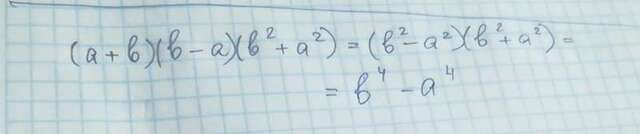 (a+b)(b-a)(b²+a²)=(b²-a²)(b²+a²)=
=b⁴-a⁴